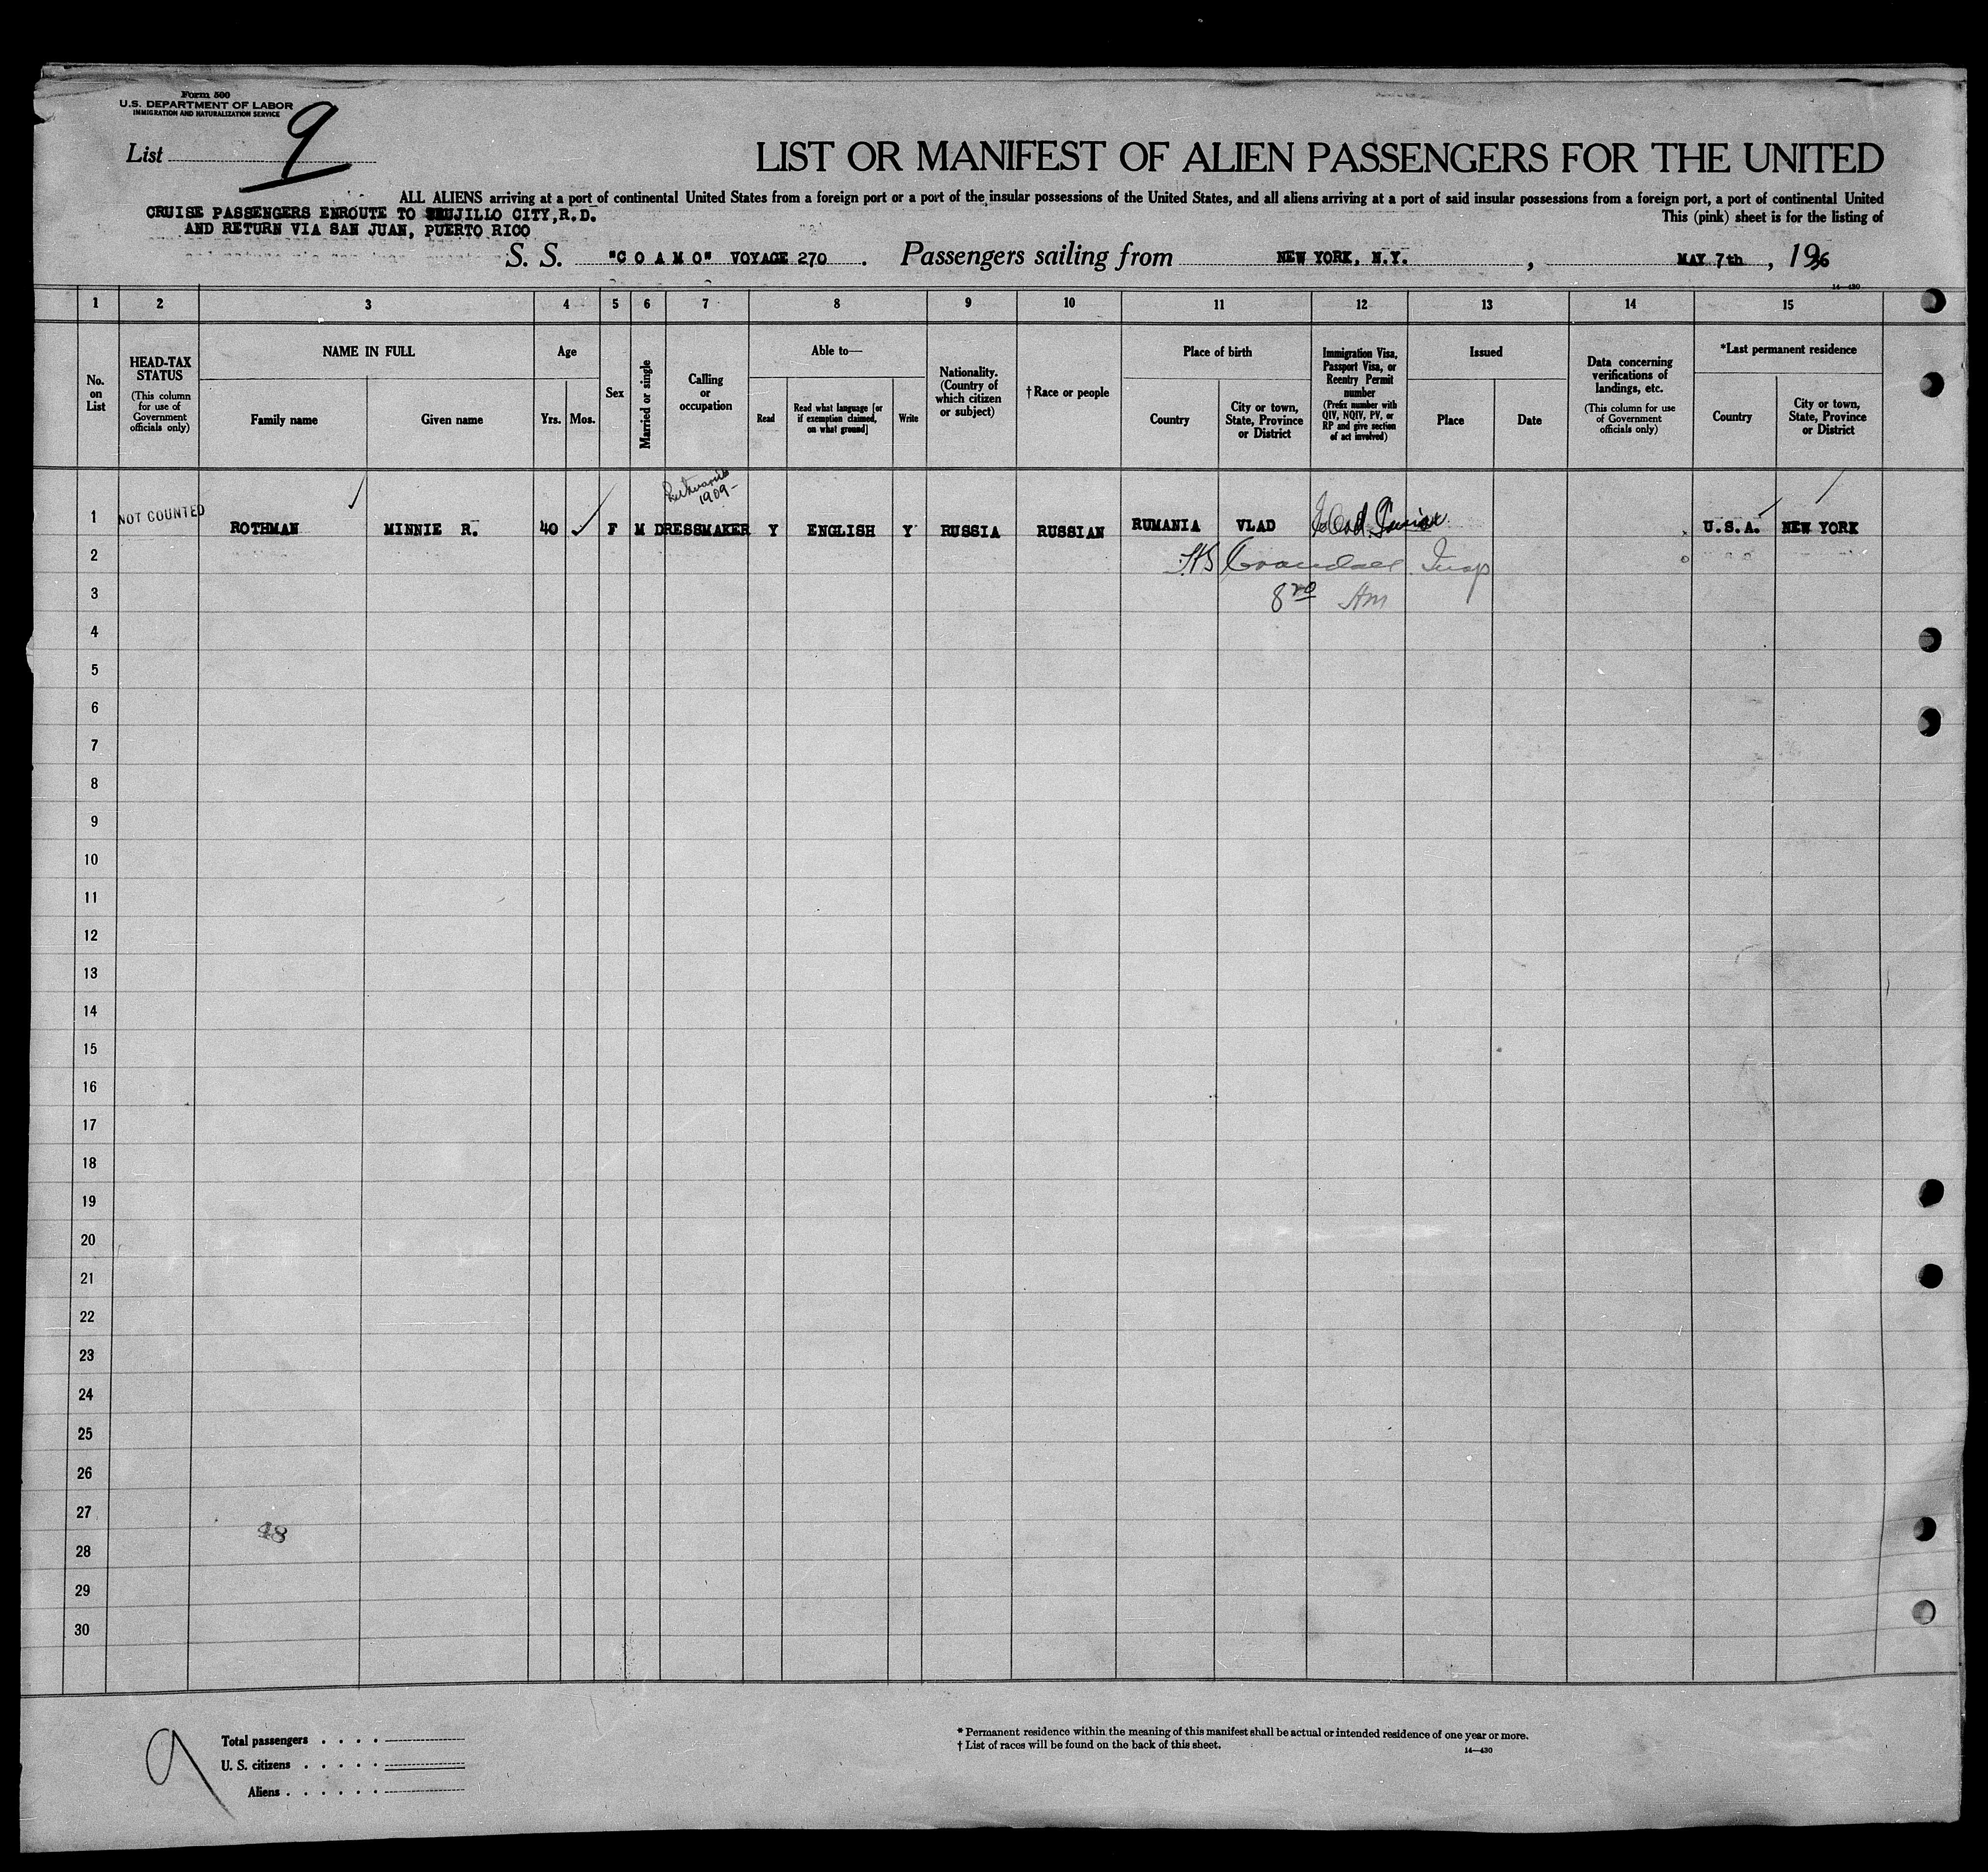 Form 500
U.S. DEPARTMENT OF LABOR
IMMIGRATION AND NATURALIZATION SERVICE
List 9
LIST OR MANIFEST OF ALIEN PASSENGERS FOR THE UNITED
ALL ALIENS arriving at a port of continental United States from a foreign port or a port of the insular possessions of the United States, and all aliens arriving at a port of said insular possessions from a foreign port, a port of continental United
CRUISE PASSENGERS ENROUTE TO TRUJILLO CITY, R.D.
This (pink) sheet is for the listing of
AND RETURN VIA SAN JUAN, PUERTO RICO
S. S. "C O A M O" VOYAGE 270. Passengers sailing from NEW YORK, N.Y., MAY 7th, 1936
14—430
1 2 3 4 5 6 7 8 9 10 11 12 13 14 15
No. on List
HEAD-TAX STATUS
(This column for use of Government officials only)
NAME IN FULL
Family name
Given name
Age
Yrs.
Mos.
Sex
Married or single
Calling or occupation
Able to—
Read
Read what language [or if exemption claimed, on what ground]
Write
Nationality. (Country of which citizen or subject)
† Race or people
Place of birth
Country
City or town, State, Province or District
Immigration Visa, Passport Visa, or Reentry Permit number
(Prefix number with QIV, NQIV, PV, or RP and give section of act involved)
Issued
Place
Date
Data concerning verifications of landings, etc.
(This column for use of Government officials only)
*Last permanent residence
Country
City or town, State, Province or District
1909-
1 NOT COUNTED ROTHMAN MINNIE R. 40 F M DRESSMAKER Y ENGLISH Y RUSSIA RUSSIAN RUMANIA VLAD U.S.A. NEW YORK
2 Crandall Insp
3 8 20 Am
4
5
6
7
8
9
10
11
12
13
14
15
16
17
18
19
20
21
22
23
24
25
26
27
48
28
29
30
9
Total passengers . . . .
U. S. citizens . . . . .
Aliens . . . . . .
* Permanent residence within the meaning of this manifest shall be actual or intended residence of one year or more.
† List of races will be found on the back of this sheet.
14—430